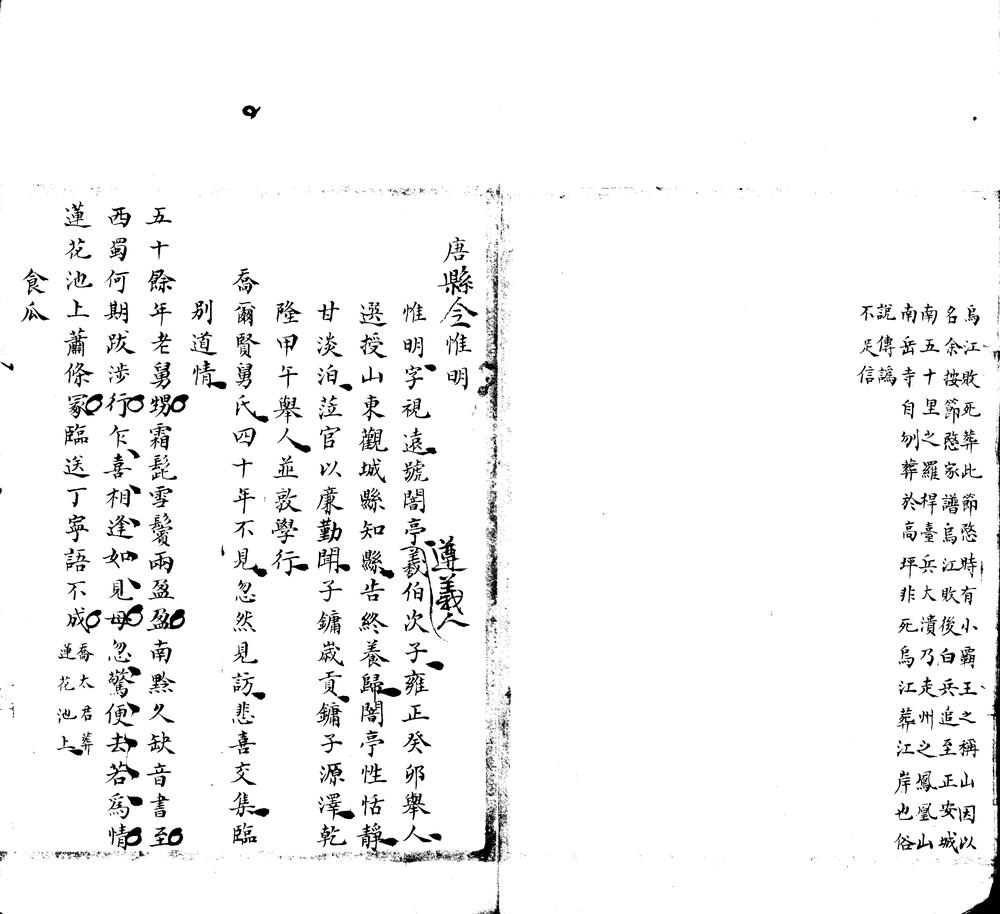 烏江敗死葬此節愍時有小霸王之稱山因以
名余按節愍家譜烏江敗後白兵追至正安城
南五十里之羅桿臺兵大潰乃走州之鳳凰山
南岳寺自刎葬於高坪非死烏江葬江岸也俗
說傳譌
不足信
唐縣令惟明
惟明字視遠號闇亭義伯次子雍正癸卯舉人
遵義人
選授山東觀城縣知縣告終養歸闇亭性恬靜
甘淡泊蒞官以廉勤聞子鏞嵗貢鏞子源澤乾
隆甲午舉人並敦學行
喬爾賢舅氏四十年不見忽然見訪悲喜交集臨
別道情
五十餘年老舅甥霜髭雪鬢兩盈盈南黔久缺音書至
西蜀何期跋涉行乍喜相逢如見母忽驚便去若爲情
蓮花池上蕭條冢臨送丁寧語不成喬太君葬
蓮花池上
食瓜